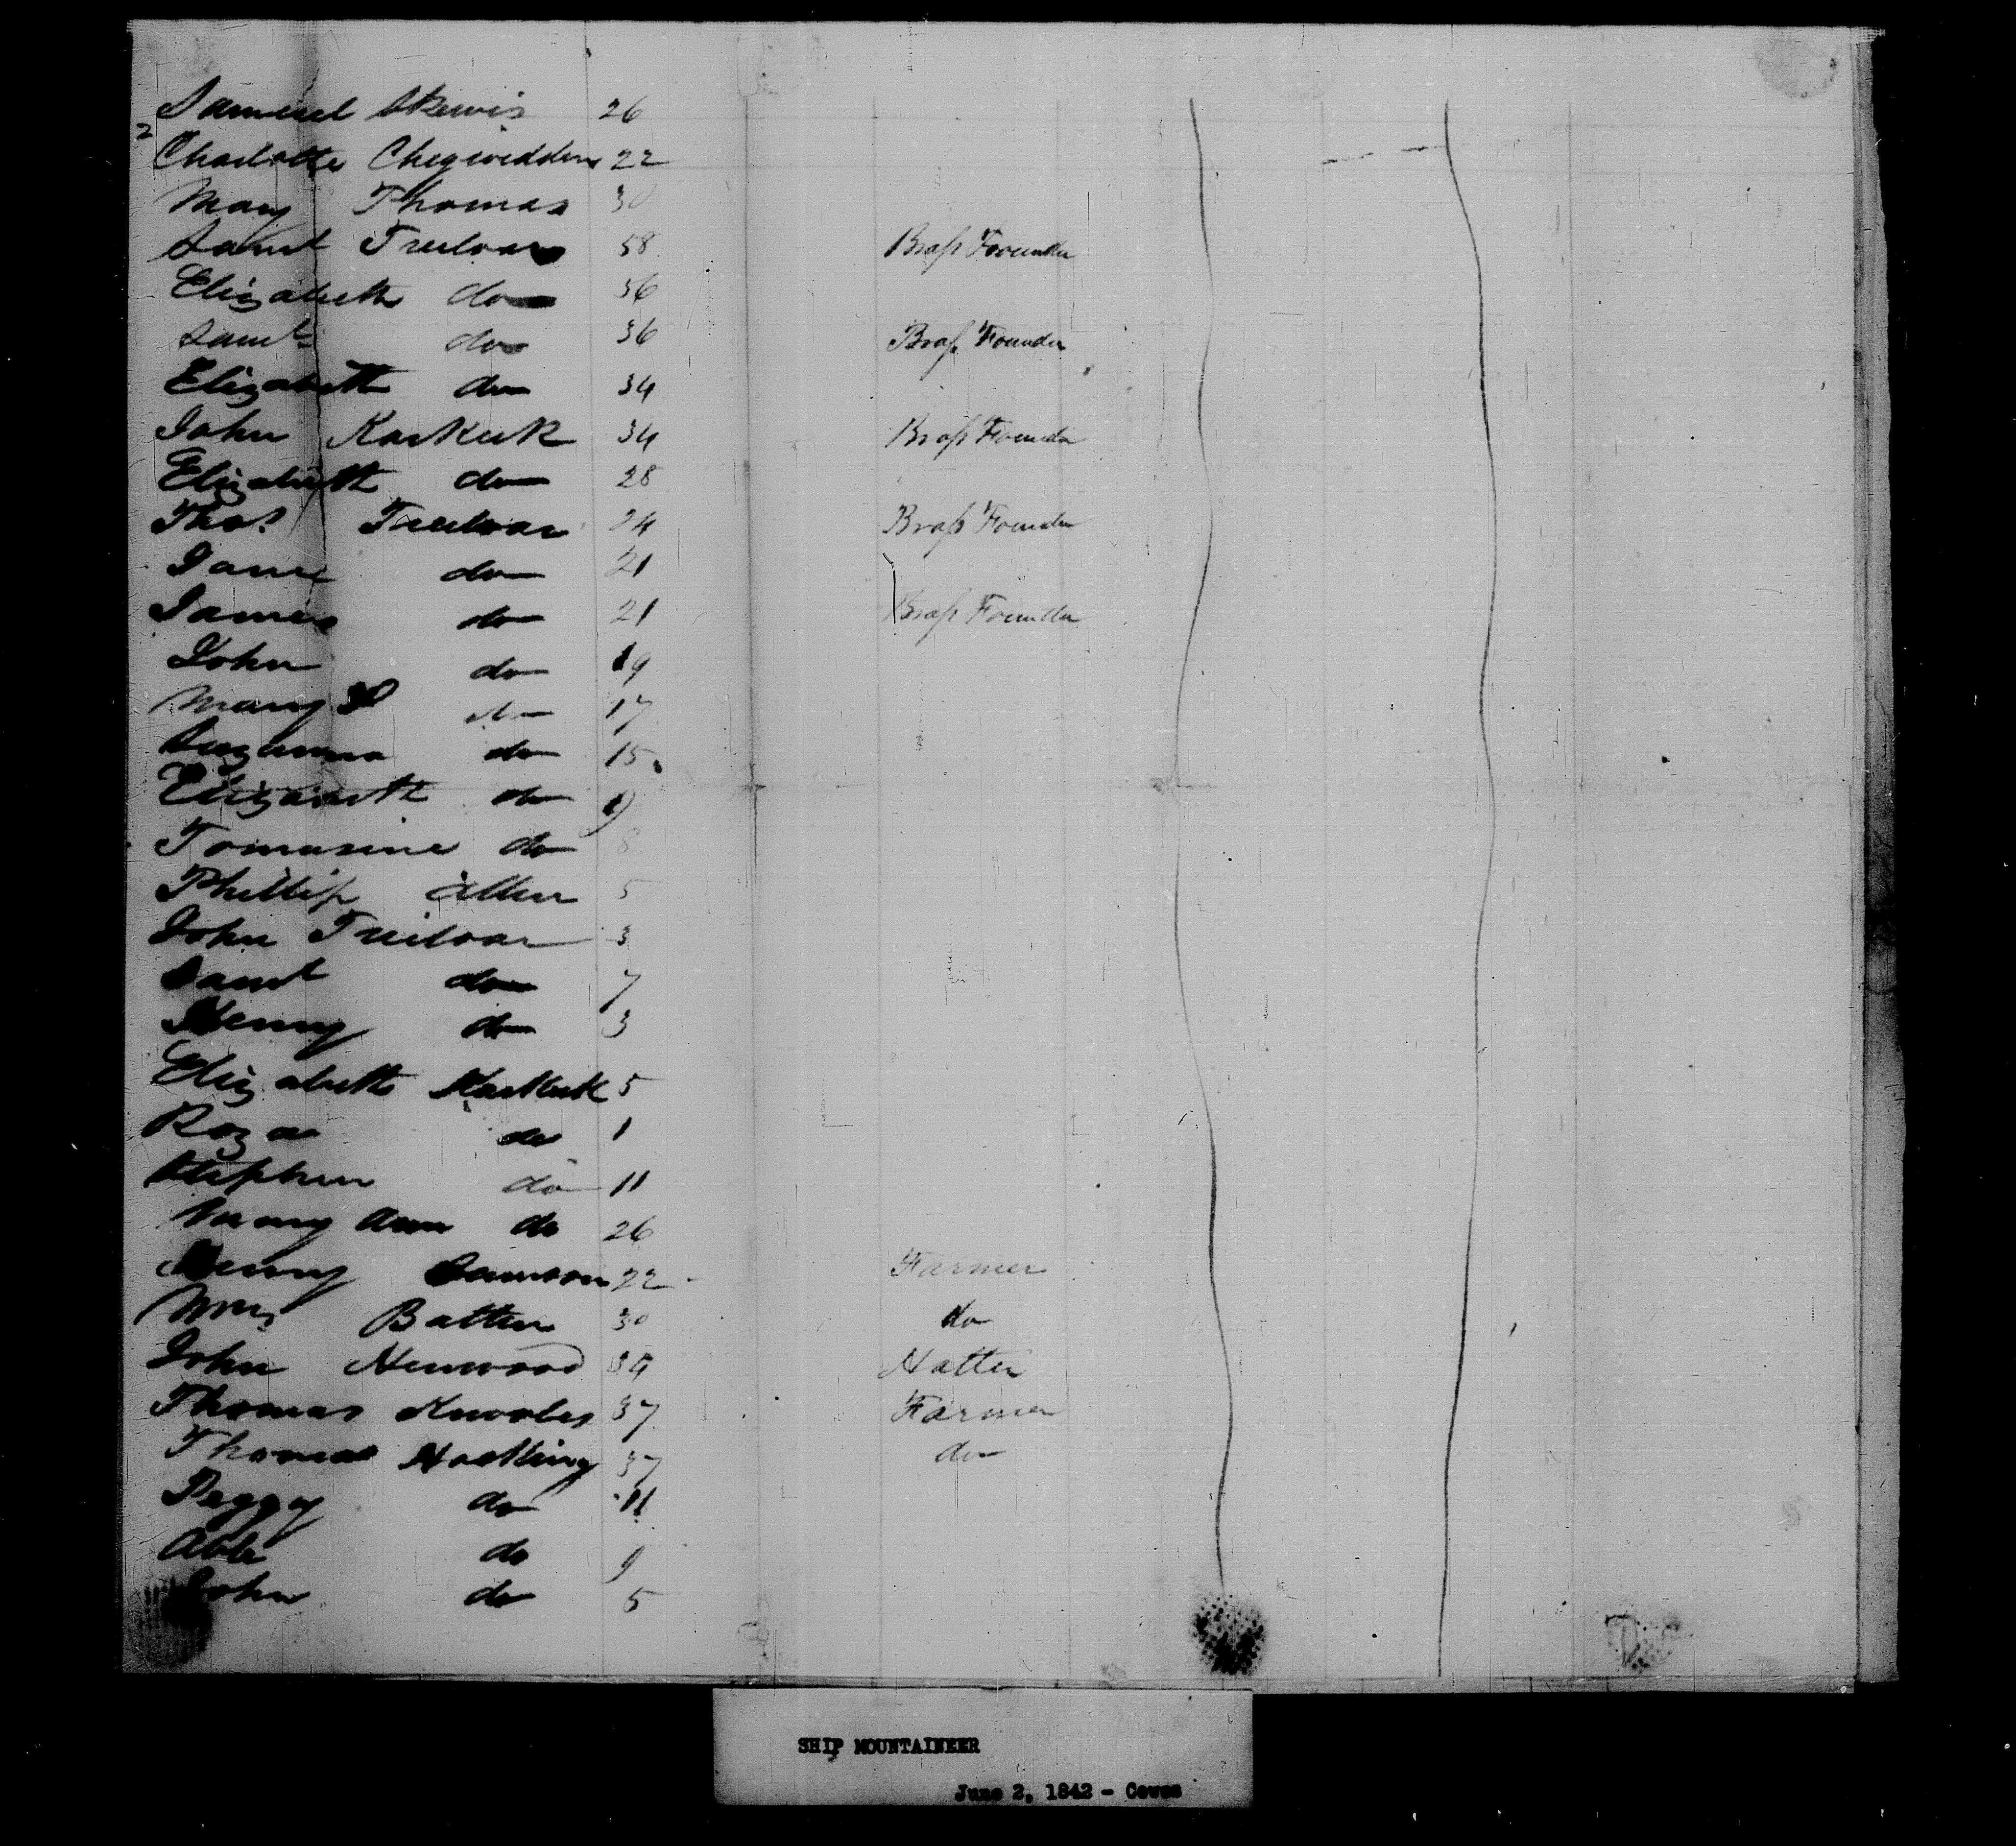 Samuel Skewis 26
2
Charlotte Chegwidden 22
Mary Thomas 30
Saml Treeloar 58 Brass Founder
Elizabeth do 56
Saml do 36 Brass Founder
Elizabeth do 34
John Kaskeek 34 Brass Founder
Elizabeth do 28
Thos Treeloar 24 Brass Founder
Jane do 21
James do 21 Brass Founder
John do 19
Mary do 17
Suzanna do 15
Elizabeth do 9
Tomasine do 8
Phillip Allen 5
John Treeloar 3
Saml do 7
Henry do 3
Elizabeth Kaskeek 5
Roza do 1
Stephen do 11
Mary Ann do 26
Henry Samson 22 Farmer
Wm Batten 30 do
John Henwood 34 Hatter
Thomas Knowles 37 Farmer
Thomas Hosking 37 do
Peggy do 11
Able do 9
John do 5
SHIP MOUNTAINEER
June 2, 1842 - Cowes